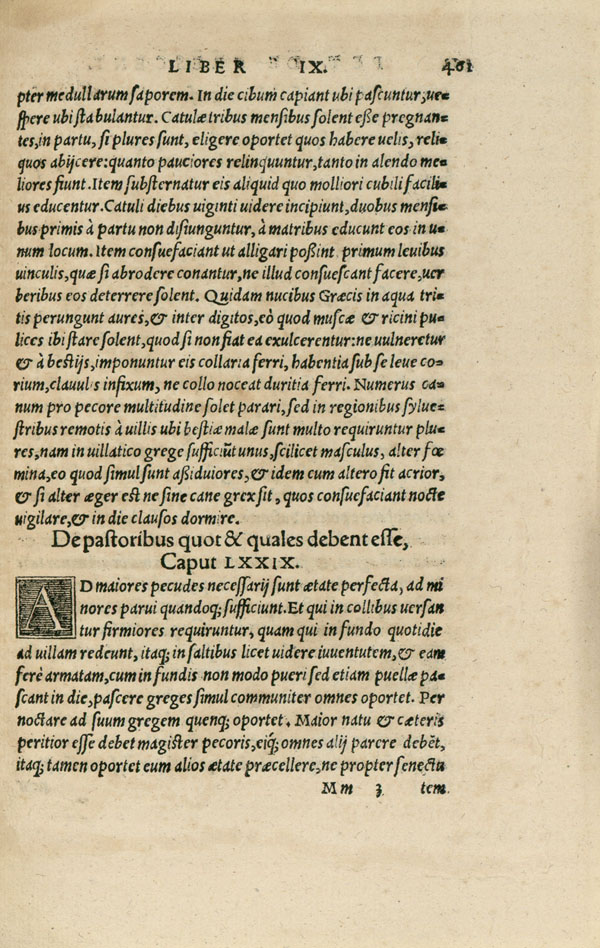 LIBER IX. 461
pter medullarum saporem. In die cibum capiant ubi pascuntur, ue-
spere ubi stabulantur. Catulæ tribus mensibus solent esse pregnan-
tes, in partu, si plures sunt, eligere oportet quos habere uelis, reli-
quos abijcere: quanto pauciores relinquuntur, tanto in alendo me-
liores fiunt. Item substernatur eis aliquid quo molliori cubili facili-
us educentur. Catuli diebus uiginti uidere incipiunt, duobus mensi-
bus primis à partu non disiunguntur, à matribus educunt eos in u-
num locum. Item consuefaciant ut alligari possint primum leuibus
uinculis, quæ si abrodere conantur, ne illud consuescant facere, uer
beribus eos deterrere solent. Quidam nucibus Græcis in aqua tri-
tis perungunt aures, & inter digitos, eò quod muscæ & ricini pu-
lices ibi stare solent, quod si non fiat ea exulcerentur: ne uulneretur
& à bestijs, imponuntur eis collaria ferri, habentia sub se leue co-
rium, clauulis infixum, ne collo noceat duritia ferri. Numerus ca-
num pro pecore multitudine solet parari, sed in regionibus sylue-
stribus remotis à uillis ubi bestiæ malæ sunt multo requiruntur plu-
res, nam in uillatico grege sufficiũt unus, scilicet masculus, alter fœ
mina, eo quod simul sunt assiduiores, & idem cum altero fit acrior,
& si alter æger est ne sine cane grex sit, quos consuefaciant nocte
uigilare, & in die clausos dormire.
De pastoribus quot & quales debent esse,
Caput LXXIX.
AD maiores pecudes necessarij sunt ætate perfecta, ad mi
nores parui quandoq; sufficiunt. Et qui in collibus uersan
tur firmiores requiruntur, quam qui in fundo quotidie
ad uillam redeunt, itaq; in saltibus licet uidere iuuentutem, & eam
ferè armatam, cum in fundis non modo pueri sed etiam puellæ pa-
scant in die, pascere greges simul communiter omnes oportet. Per
noctare ad suum gregem quenq; oportet. Maior natu & cæteris
peritior esse debet magister pecoris, eiq́; omnes alij parere debẽt,
itaq; tamen oportet eum alios ætate præcellere, ne propter senectu
Mm 3 tem